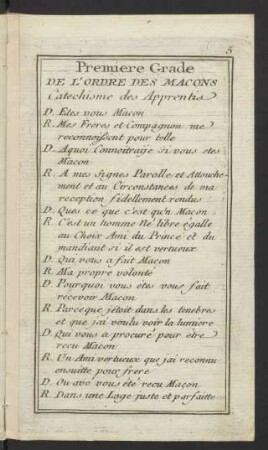 5
Premiere Grade
DE L'ORDRE DES MAÇONS
Catechisme des Apprentis
D. Etes vous Macon
R. Mes Freres et Compagnon me
reconnoissent pour telle
D. Aquoi Connoitraije si vous etes
Macon
R. A mes signes Parolle et Attouche-
ment et au Circonstances de ma
reception fidellement rendus
D. Ques ce que c'est qu'n Macon
R. C'est un homme Né libre égalle
au Choix Ami du Prince et du
mandiant si il est vertueux
D. Qui vous a fait Macon
R. Ma propre volonté
D. Pourquoi vous étes vous fait
recevoir Macon
R. Parceque j'etoit dans les tenebres
et que j'ai voulu voir la lumiere
D. Qui vous a procuré pour étre
recu Macon
R. Un Ami vertueux que j'ai reconnu
ensuitte pour frere
D. Ou avé vous été recu Maçon
R. Dans une Loge juste et parfaitte